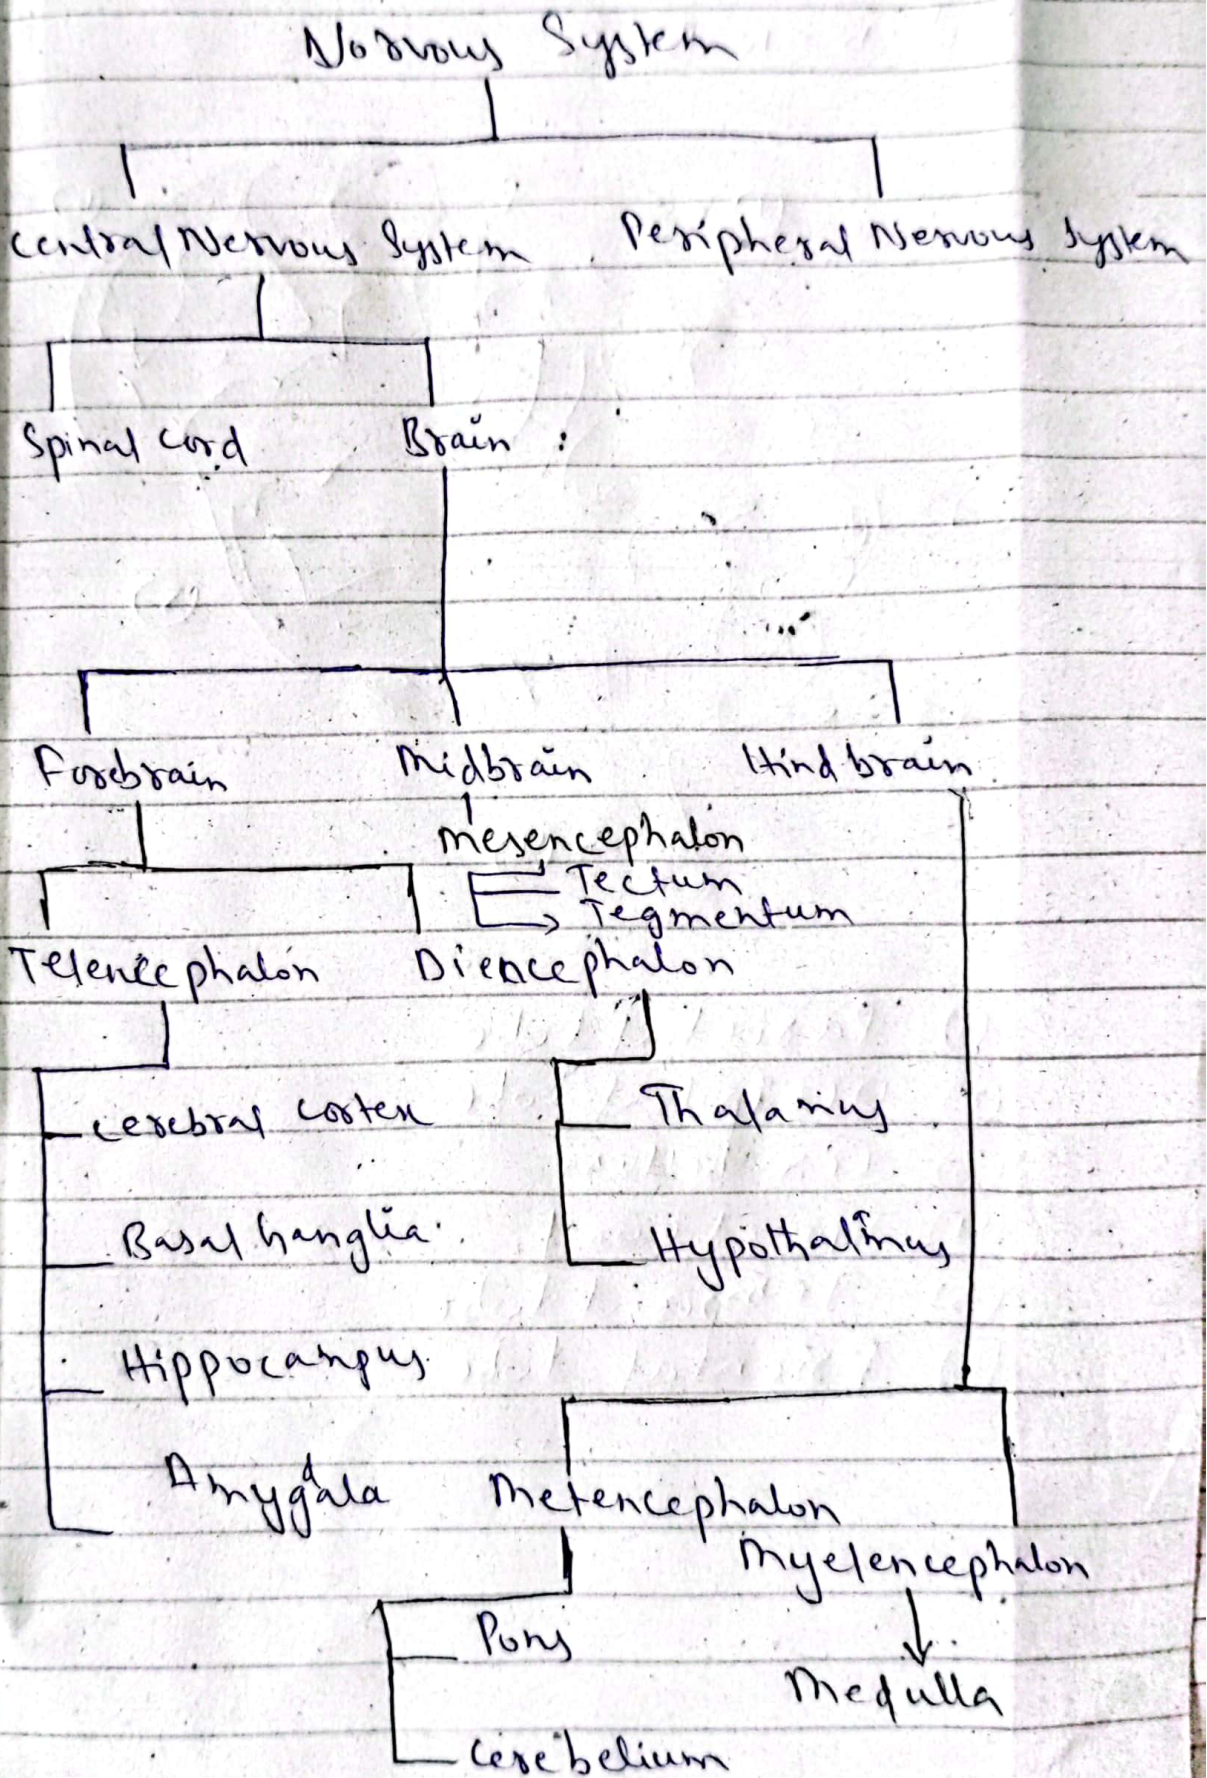 Norvous System
Central Nervous System Peripheral Nervous System
Spinal cord Brain :
Forebrain Midbrain Hind brain
Mesencephalon
Tectum
Tegmentum
Telencephalon Diencephalon
cerebral cortex Thalamus
Basal Ganglia Hypothalmus
Hippocampus
Amygdala Metencephalon
Myelencephalon
Pons
Medulla
Cerebelium